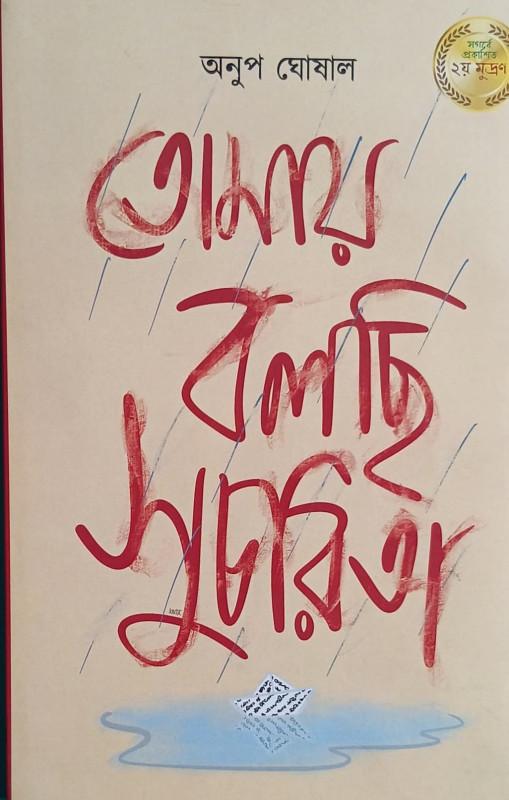 অনুপ ঘোষাল
সগর্বে
প্রকাশিত
২য় মুদ্রণ
তোমায়
বলছি
সুচরিতা